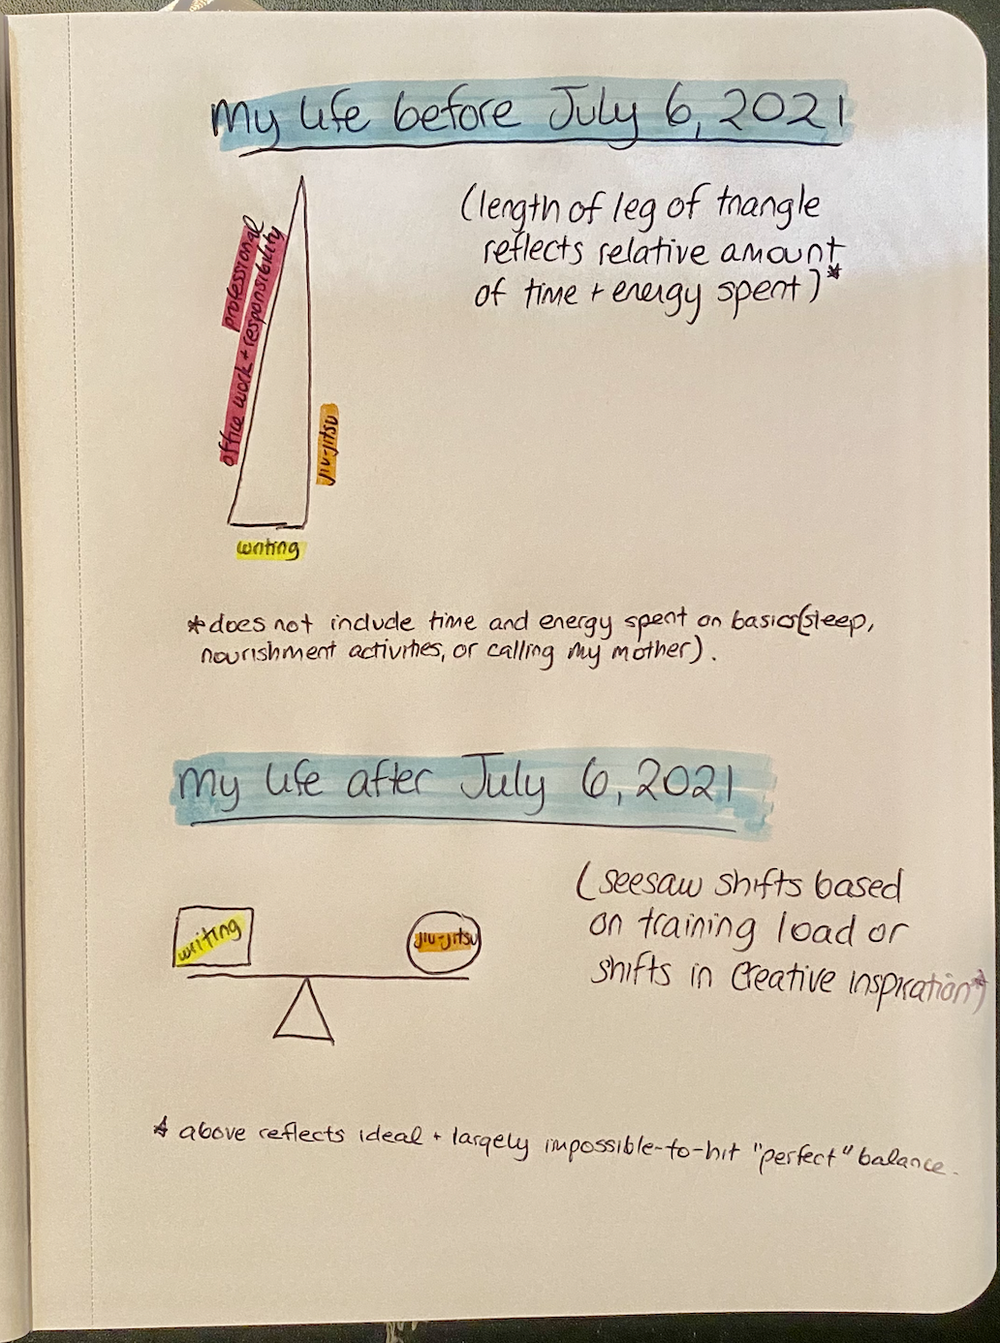 My life before July 6, 2021
(length of leg of triangle
reflects relative amount
of time + energy spent)*
professional
office work + responsibility
jiu-jitsu
writing
*does not include time and energy spent on basics (sleep,
nourishment activities, or calling my mother).
My life after July 6, 2021
(seesaw shifts based
on training load or
shifts in creative inspiration*)
writing
jiu-jitsu
* above reflects ideal + largely impossible-to-hit "perfect" balance.